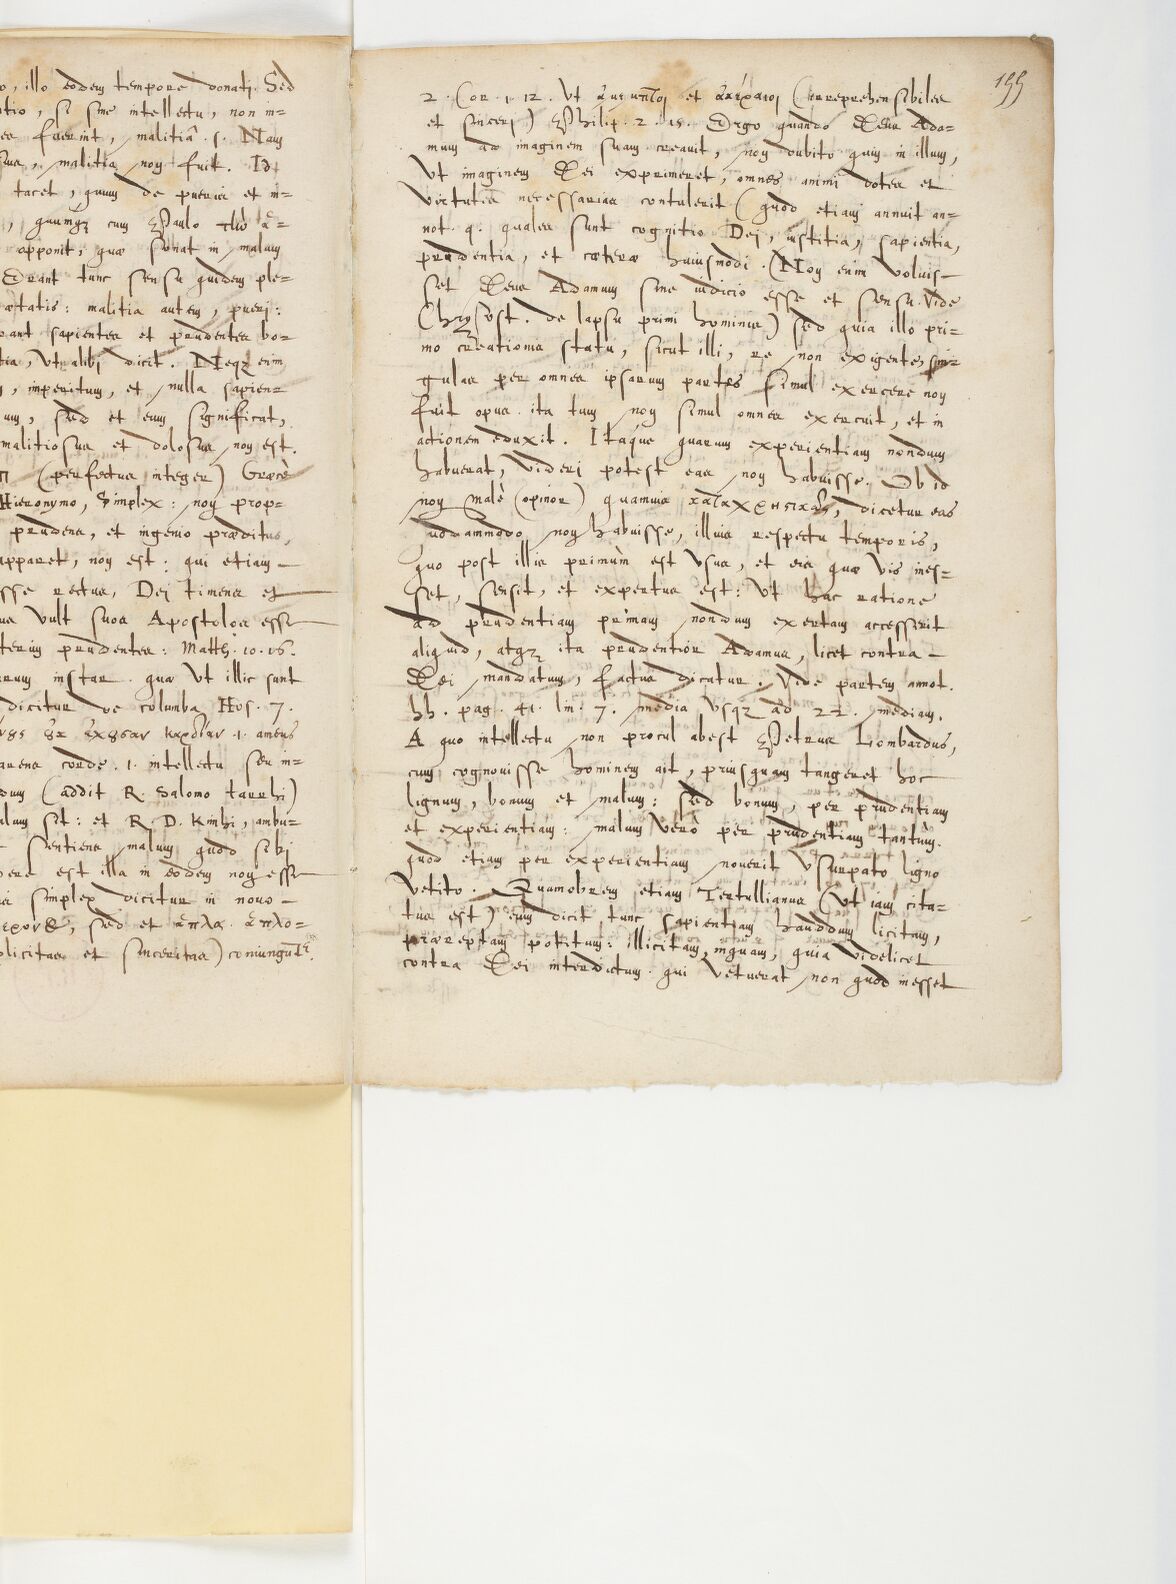 o, illo eodem tempore donati. Sed
tio, si sine intellectu, non in=
fuerint, malitiâ .s. Nam
sua, malitia non fuit. Id
tacet, quum de pueris et in=
, quumq; cum Paulo τῶ ἀ=
apponit, quæ sonat in malum
Erant tunc sensu quidem ple=
ætatis: malitia autem, pueri:
erant sapientes et prudentes bo=
tia, ut alibi dicit. Neq; enim
, imperitum, et nulla sapien=
um, sed et eum significat,
malitiosus et dolosus non est.
(perfectus integer) Græcè
Hieronymo, Simplex: non prop=
prudens, et ingenio præditus,
apparet, non est: qui etiam
sse rectus, Dei timens et
vult suos Apostolos esse
prudentes: Matth. 10. 16.
instar. quæ ut illic sunt
dicitur de columba Hos. 7.
καρδίαν .i. ambus
carens corde .i. intellectu seu in=
dum (addit R. Salomo Iarrhi)
alum sit: et R. D. Kimhi, ambu=
sentiens malum quod sibi
vere est illa in eodem non esse
simplex dicitur in novo
sed et ἁπλᾶς. ἁπλο=
plicitas et sinceritas) coniungūt
155
2. Cor. 1. 12. Ut ἄμεμπτοι et ἀκέραιοι (irreprehensibiles
et sinceri) Philip. 2. 15. Ergo quando Deus Ada=
mum ad imaginem suam creavit, non dubito quin in illum,
Ut imaginem Dei exprimeret, omnes animi dotes et
virtutes necessarias contulerit (quod etiam annuit an=
not. q. quales sunt cognitio Dei, iustitia, sapientia,
prudentia, et cæteræ huiusmodi. (Non enim voluis=
set Deus Adamum sine iudicio esse et sensu. Vide
Chrysost. de lapsu primi hominis) sed quia illo pri=
mo creationis statu, sicut illi, re non exigente, sin=
gulas per omnes ipsarum partes simul exercere non
fuit opus. ita tum non simul omnes exercuit, et in
actionem eduxit. Itaque quarum experientiam nondum
habuerat, videri potest eas non habuisse. Ob id
non malè (opinor) quamvis καταχρηστικῶς, dicetur eas
uodammodo non habuisse, illius respectu temporis,
quo post illis primùm est usus, et eis quæ vis ines=
set, sensit, et expertus est: ut hac ratione
ad prudentiam primam nondum exertam accesserit
aliquid, atq; ita prudentior Adamus, licet contra
Dei mandatum, factus dicatur. Vide partem annot.
hh. pag. 41. lin. 7. media usq; ad 22. mediam.
A quo intellectu non procul abest Petrus Lombardus,
cum cognovisse hominem ait, priusquam tangeret hoc
lignum, bonum et malum: sed bonum, per prudentiam
et experientiam: malum verò per prudentiam tantùm.
quod etiam per experientiam noverit usurpato ligno
vetito. Quamobrem etiam Tertullianus (ut iam cita=
tus est) eum dicit tunc sapientiam hauddum licitam,
præreptam potitum: illicitam, inquam, quia videlicet
contra Dei interdictum. qui vetuerat, non quod inesset